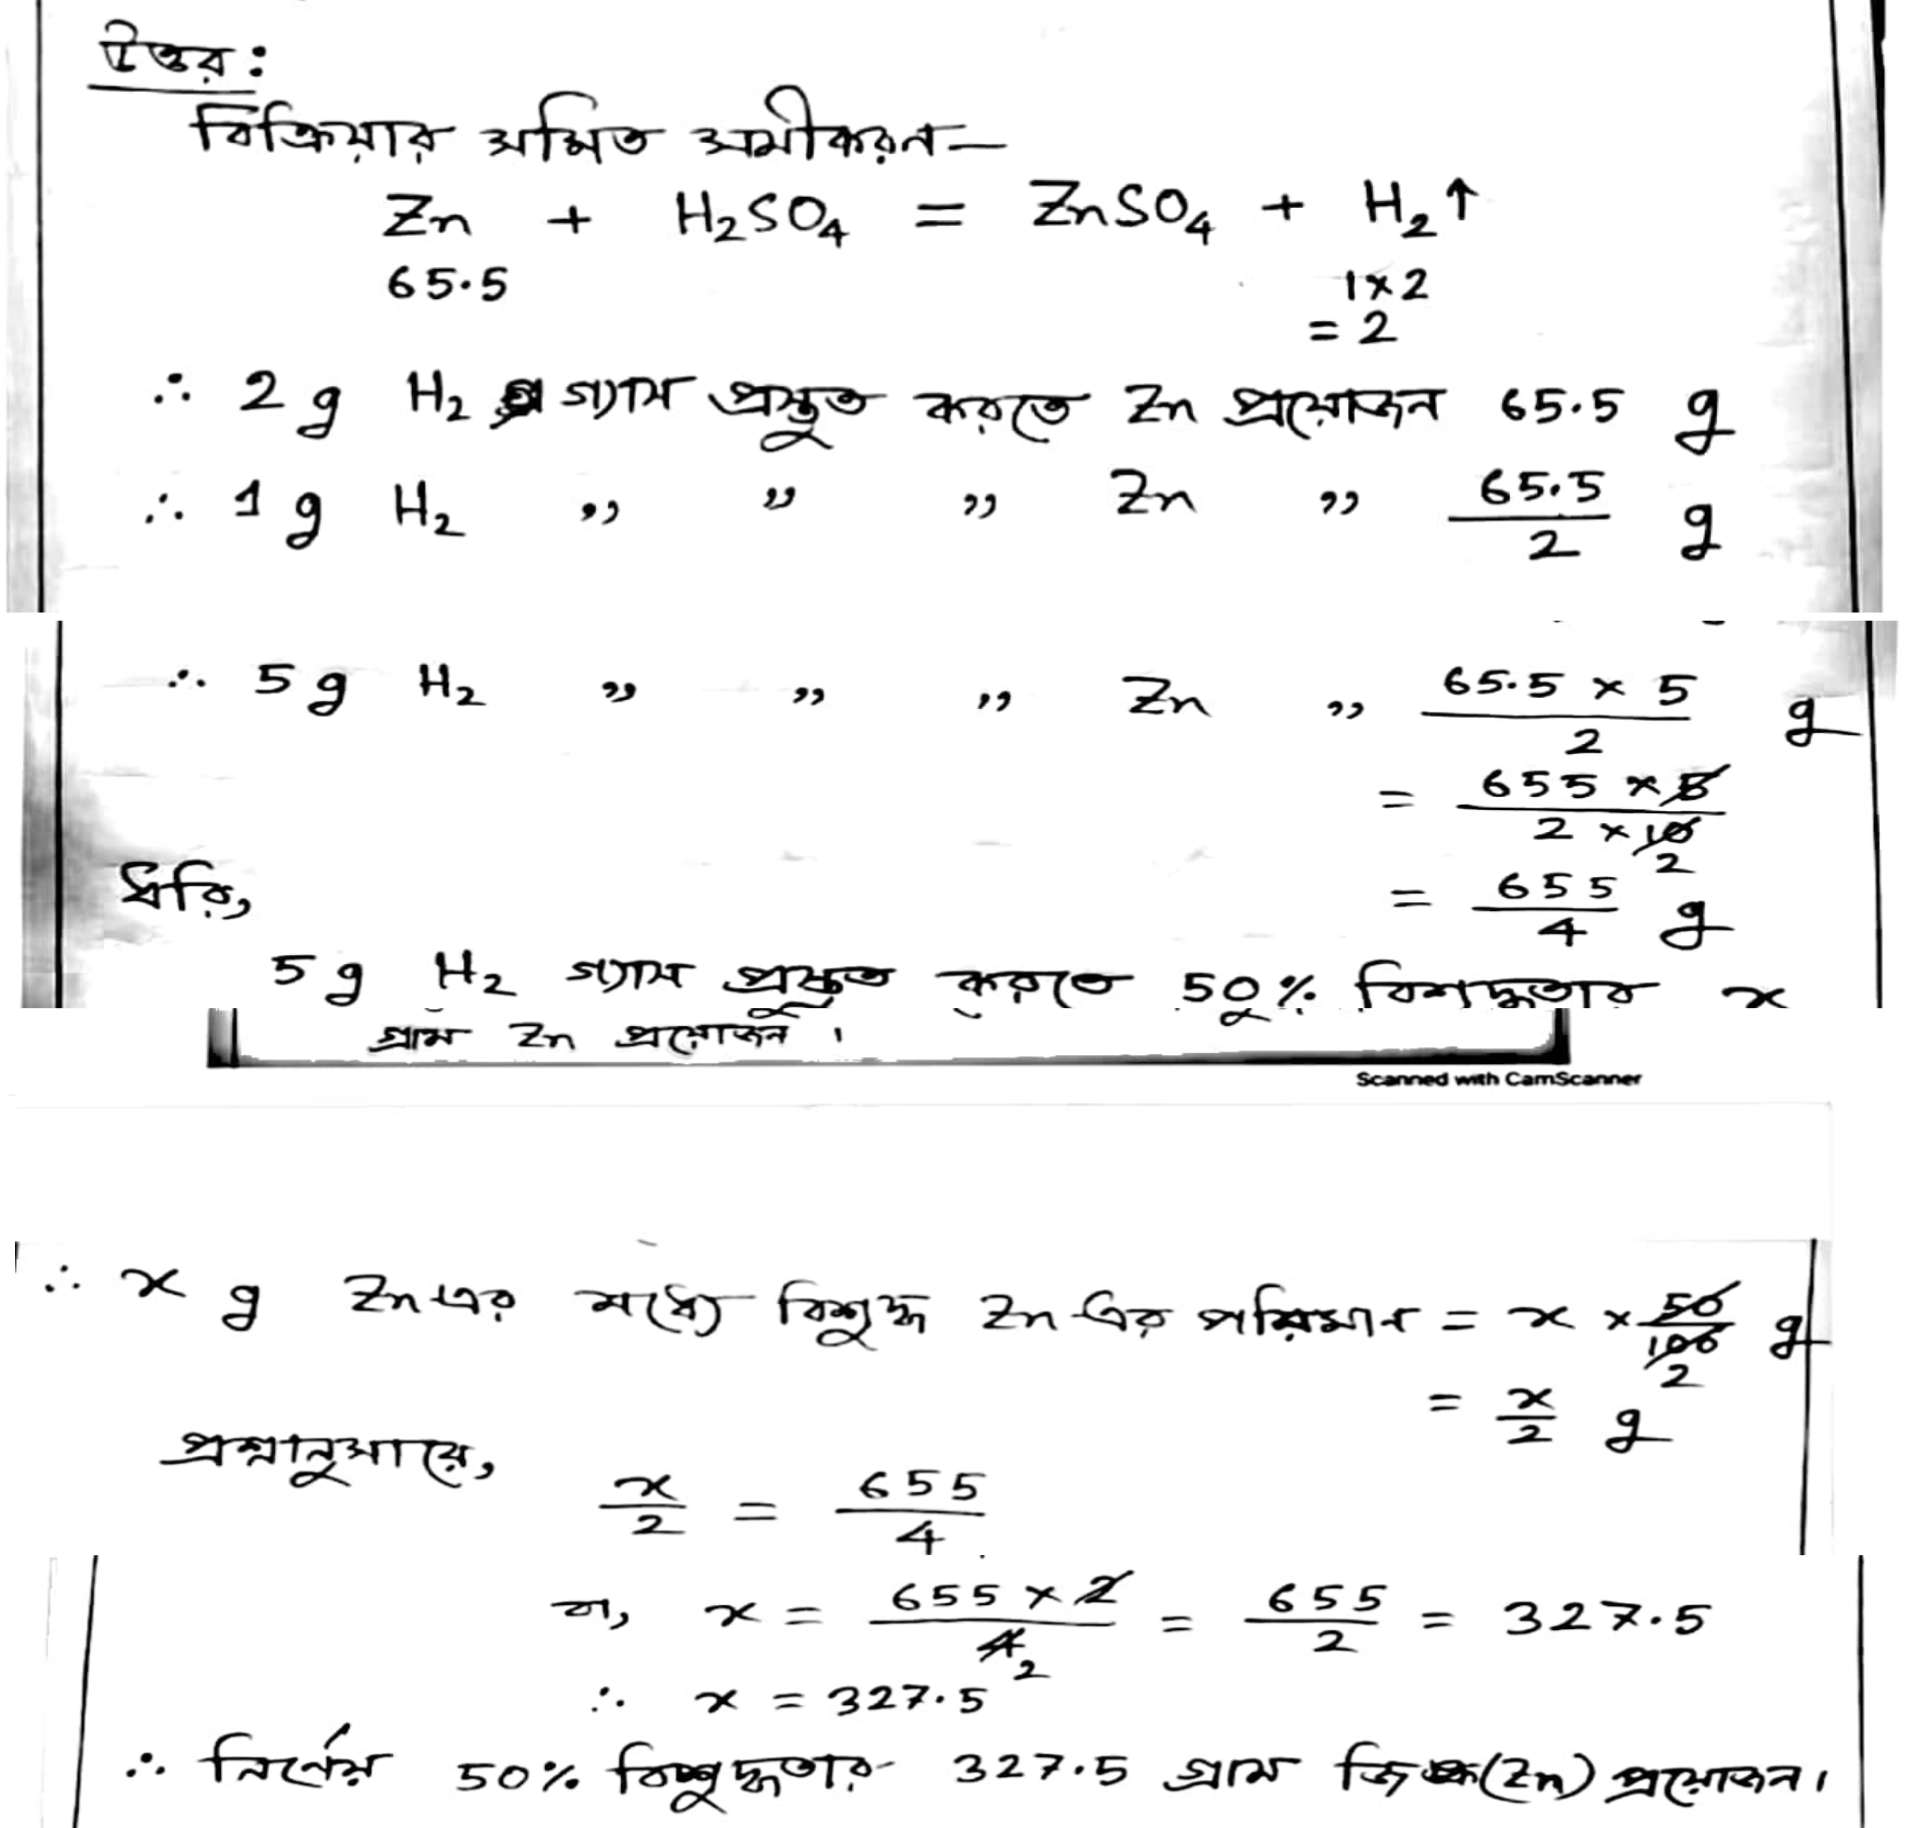 উত্তর :
বিক্রিয়ার সমিত সমীকরন —
Zn + H₂SO₄ = ZnSO₄ + H₂↑
65.5 1×2
= 2
∴ 2 g H₂ গ্যাস প্রস্তুত করতে Zn প্রয়োজন 65.5 g
∴ 1 g H₂ ,, ,, ,, Zn ,, 65.5/2 g
∴ 5 g H₂ ,, ,, ,, Zn ,, 65.5 × 5/2 g
= 655 × 5/2 × 10 2
ধরি, = 655/4 g
5 g H₂ গ্যাস প্রস্তুত করতে 50% বিশদ্ধতার x
গ্রাম Zn প্রয়োজন ।
Scanned with CamScanner
∴ x g Zn এর মধ্যে বিশুদ্ধ Zn এর পরিমান = x × 50/100 2 g
= x/2 g
প্রশ্নানুসারে,
x/2 = 655/4
বা, x = 655 × 2/4 2 = 655/2 = 327.5
∴ x = 327.5
∴ নির্ণেয় 50% বিশুদ্ধতার 327.5 গ্রাম জিঙ্ক (Zn) প্রয়োজন।